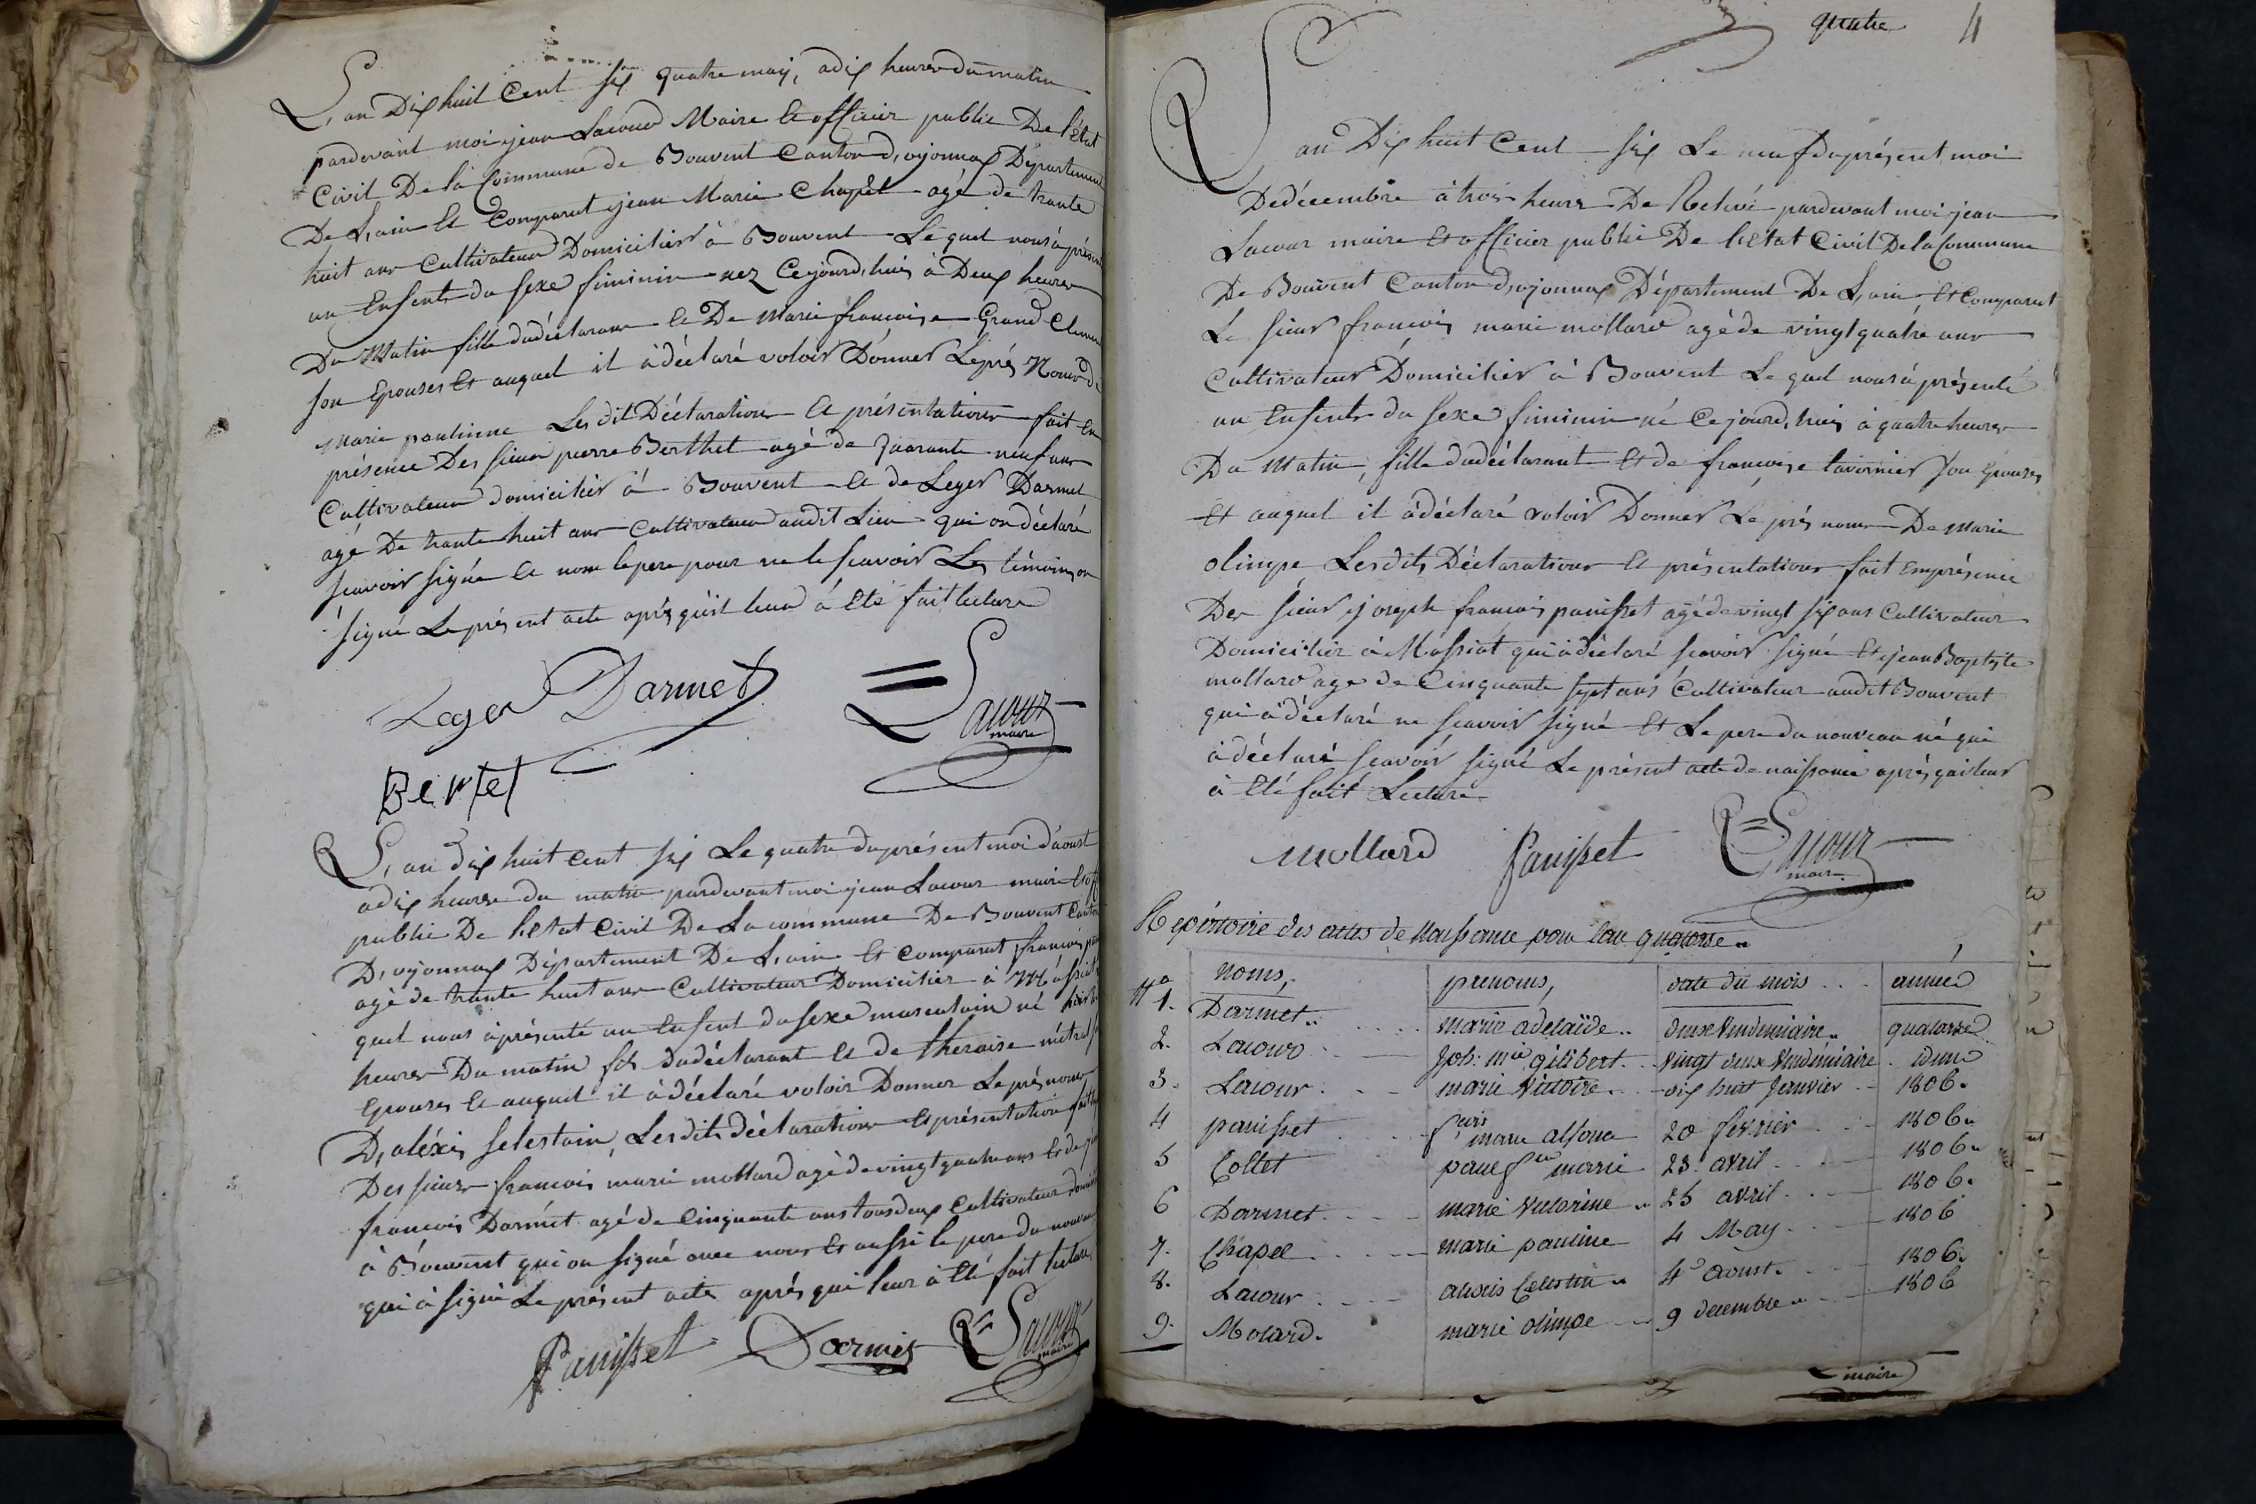 L'an Dix huit Cent Six quatre may, a dix heures du matin
pardevant moi jean Lacour Maire et officier public De l'état
Civil De la Commune de Bouvent Canton d'oyonnax Département
De L'ain Et Comparut jean Marie Chapel agé de trante
huit ans Cultivateur Domicilier à Bouvent Le quel nous à présen
un Enfents du sexe feminin nez Cejourd'huis à Deux heures
Du Matin fille dudéclarant et De Marie francoise Grand Clem
son Epouses Et auquel il à déclaré voloir Donner Leprés Noms de
Marie paulinne Lesdit Déclaration Et présentations fait En
présence Des sieur pierre Berthet agé de quarante neuf ans
Cultivateur domicilier à Bouvent Et de Leger Darmet
agé De trante huit ans Cultivateur audit Lieu qui on déclaré
scavoir signé Et non le pere pour ne le scavoir Les témoins on
signé Le présent acte après qu'il leur à Eté fait lecture
Leger Darmet Lacour
maire
Bertet
L'an dix huit cent six Le quatre du présent moi d'aoust
a dix heures du matin pardevant moi jean Lacour maire Et off
public De l'état Civil De La commune De Bouvent Canton
D'oyonnax Département De L'ain Et comparut francois
agé de trante huit ans Cultivateur Domicilier à Massiat
quel nous à présenté un Enfent du sexe masculain né
heures Du matin fils Dudéclarant Et de theraise métral
Epouses Et auquel il à déclaré voloir Donner Le prés nom
D'aléxis selestain Lesdits déclaration Et présentation fait
Des sieurs francois marie mollard agé de vingt quatre ans Et de
francois Darmet agé de Cinquante ans tousdeux Cultivateur
à Bouvent qui on signé avec nous Et aussi le pere du nouveau
qui à signé Le présent acte après qui leur à Eté fait lecture
Panisset Darmet Lacour
maire
quatre 4
L'an Dix huit Cent Six Le neuf du présent moi
De décembre à trois heures De Relevé pardevant moi jean
Lacour maire Et officier public De l'état Civil De la Commune
De Bouvent Canton d'oyonnax Département De L'ain Et Comparut
Le sieur francois marie mollard agé de vingt quatre ans
Cultivateur Domicilier à Bouvent Le quel nous à présenté
un Enfents du sexe feminin né Cejourd'huis à quatre heures
Du Matin, fille dudéclarant Et de francoise tavernier son Epouses
Et auquel il à déclaré voloir Donner Le prés nom De Marie
olimpe Lesdits Déclarations Et présentations fait En présence
Des sieur joseph francois panisset agé de vingt six ans Cultivateur
Domicilier à Massiat qui à déclaré scavoir signé Et jean Baptiste
mollard age de Cinquante sept ans Cultivateur audit Bouvent
qui à déclaré ne scavoir signé Et Le pere du nouveau né qui
à déclaré scavoir signé Le présent acte de naissance après qui leur
à Eté fait Lecture
Mollard Panisset Lacour
maire
Repértoire des actes de Naissance pour l'an quatorze
Nº noms, prenoms, date du mois année
1. Darmet marie adelaïde deux Vendemiaire quatorze
2. Lacour Jph. mie gilibert vingt deux Vendémiaire idem
3. Lacour marie Victoire dix huit Janvier 1806.
4 panisset fcois marie alfonce 20 février 1806
5 Collet marie 23. avril 1806
6 Darmet marie Victorine 25 avril 1806.
7. Chapel marie pauline 4 May 1806
8. Lacour alexis Celestin 4 aoust 1806
9. Molard marie olimpe 9 decembre 1806
maire